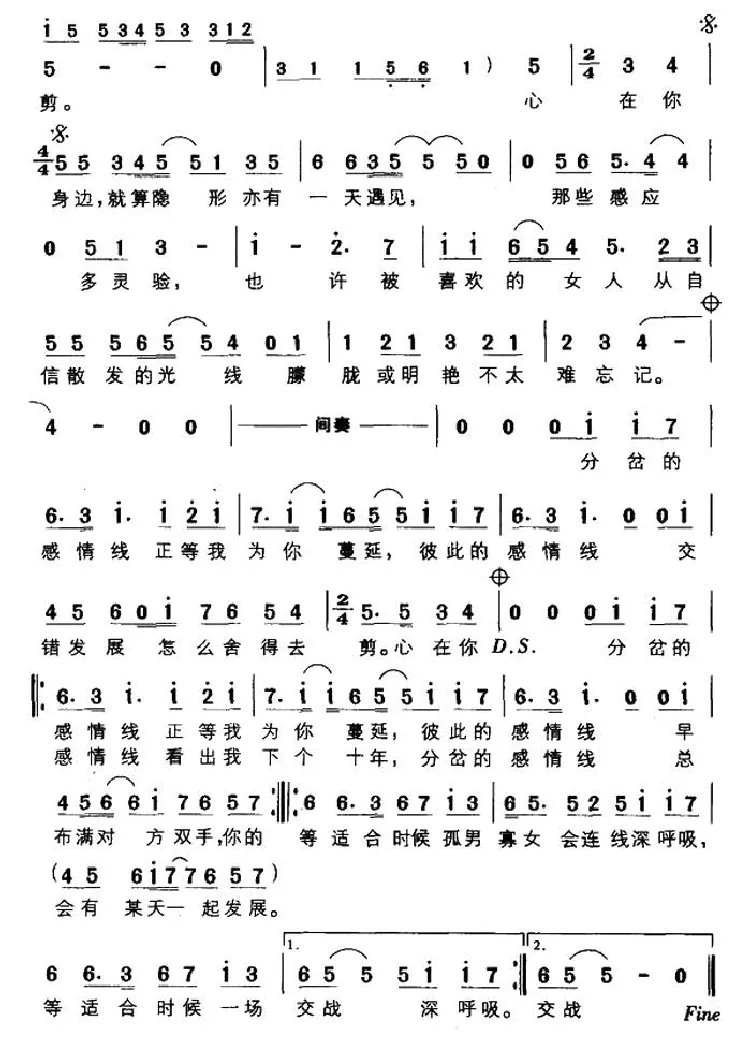 i 5 5 3 4 5 3 3 1 2
5 - - 0 | 3 1 1 5 6 1 ) 5 | 2/4 3 4 |
剪。 心 在 你
4/4 5 5 3 4 5 5 5 1 3 5 | 6 6 3 5 5 5 5 0 | 0 5 6 5. 4 4 |
身边,就算隐 形 亦有 一 天遇见, 那些 感应
0 5 1 3 - | i - 2. 7 | i i 6 5 4 5. 2 3 |
多灵 验, 也 许 被 喜欢 的 女 人 从自
5 5 5 6 5 5 4 0 1 | 1 2 1 3 2 1 | 2 3 4 - |
信散 发的光 线 朦 胧 或明 艳 不太 难忘记。
4 - 0 0 | 间奏 | 0 0 0 i i 7 |
分 岔的
6. 3 i. i 2 i | 7. i i 6 5 5 i i 7 | 6. 3 i. 0 0 i |
感情线 正等我 为你 蔓延, 彼此的 感情线 交
4 5 6 0 i 7 6 5 4 | 2/4 5. 5 3 4 | 0 0 0 i i 7 |
错发展 怎么舍得去 剪。心在你 D.S. 分 岔的
6. 3 i. i 2 i | 7. i i 6 5 5 i i 7 | 6. 3 i. 0 0 i |
感情线 正等我 为你 蔓延, 彼此的 感情线 早
感情线 看出我 下个 十年, 分岔的 感情线 总
4 5 6 6 i 7 6 5 7 :||: 6 6. 3 6 7 i 3 | 6 5. 5 2 5 i i 7 |
布满对 方双手,你的 等适合时候孤男 寡女 会连线深呼吸,
( 4 5 6 i 7 7 6 5 7 )
会有 某天一 起发展。
6 6. 3 6 7 i 3 | 1. 6 5 5 5 i i 7 :|| 2. 6 5 5 - 0 ||
等适合时候一场 交战 深呼吸。交战 Fine